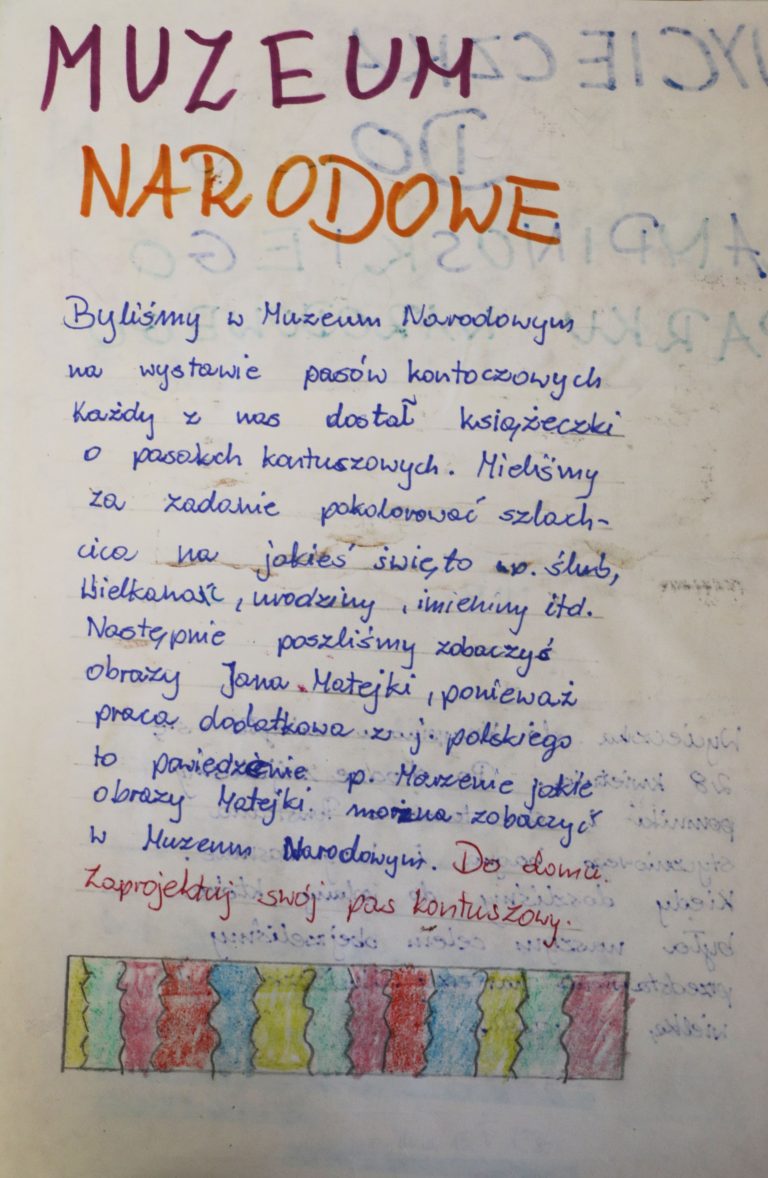 MUZEUM
NARODOWE
Byliśmy w Muzeum Narodowym
na wystawie pasów kontoczowych
Każdy z nas dostał książeczki
o pasakch kontuszowych. Mieliśmy
za zadanie pokolorować szlach-
cica na jakieś święto np. ślub,
Wielkanoc, urodziny, imieniny itd.
Następnie poszliśmy zobaczyś
obrazy Jana Matejki, ponieważ
praca dodatkowa z j. polskiego
to powiedzenie p. Marzenie jakie
obrazy Matejki można zobaczyć
w Muzeum Narodowym. Do domu.
Zaprojektuj swój pas kontuszowy.